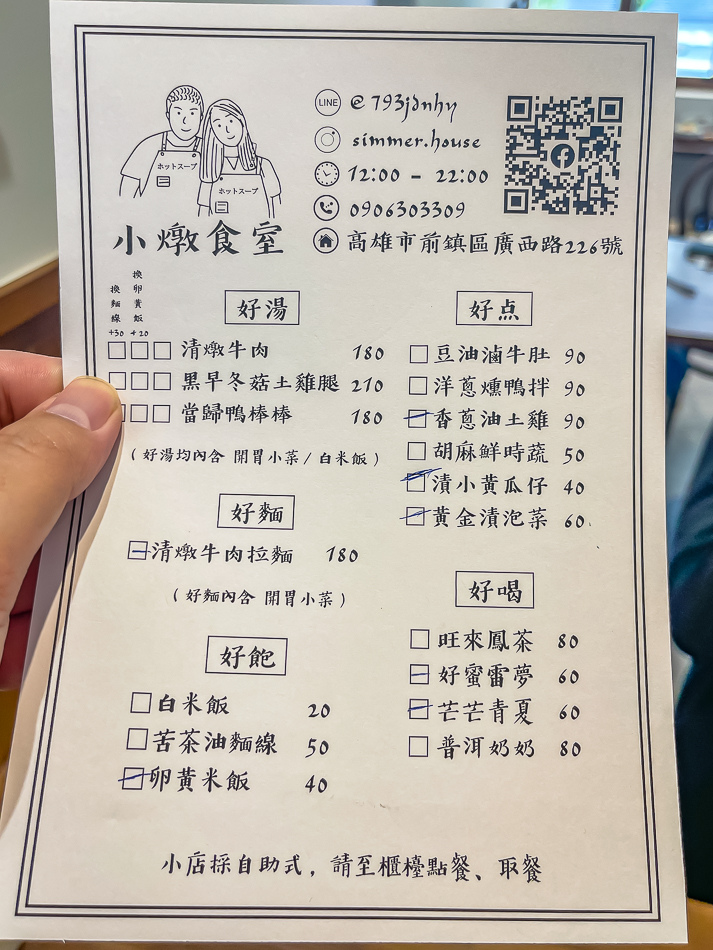 LINE @793jdnhy
simmer.house
12:00 - 22:00
0906303309
高雄市前鎮區廣西路226號
ホットスープ
ホットスープ
小燉食室
換麵線+30
換卵黃飯+20
好湯
清燉牛肉 180
黑早冬菇土雞腿 210
當歸鴨棒棒 180
(好湯均內含 開胃小菜/白米飯)
好麵
清燉牛肉拉麵 180
(好麵內含 開胃小菜)
好飽
白米飯 20
苦茶油麵線 50
卵黃米飯 40
好点
豆油滷牛肚 90
洋蔥燻鴨拌 90
香蔥油土雞 90
胡麻鮮時蔬 50
漬小黃瓜仔 40
黃金漬泡菜 60
好喝
旺來鳳茶 80
好蜜雷夢 60
芒芒青夏 60
普洱奶奶 80
小店採自助式，請至櫃檯點餐、取餐